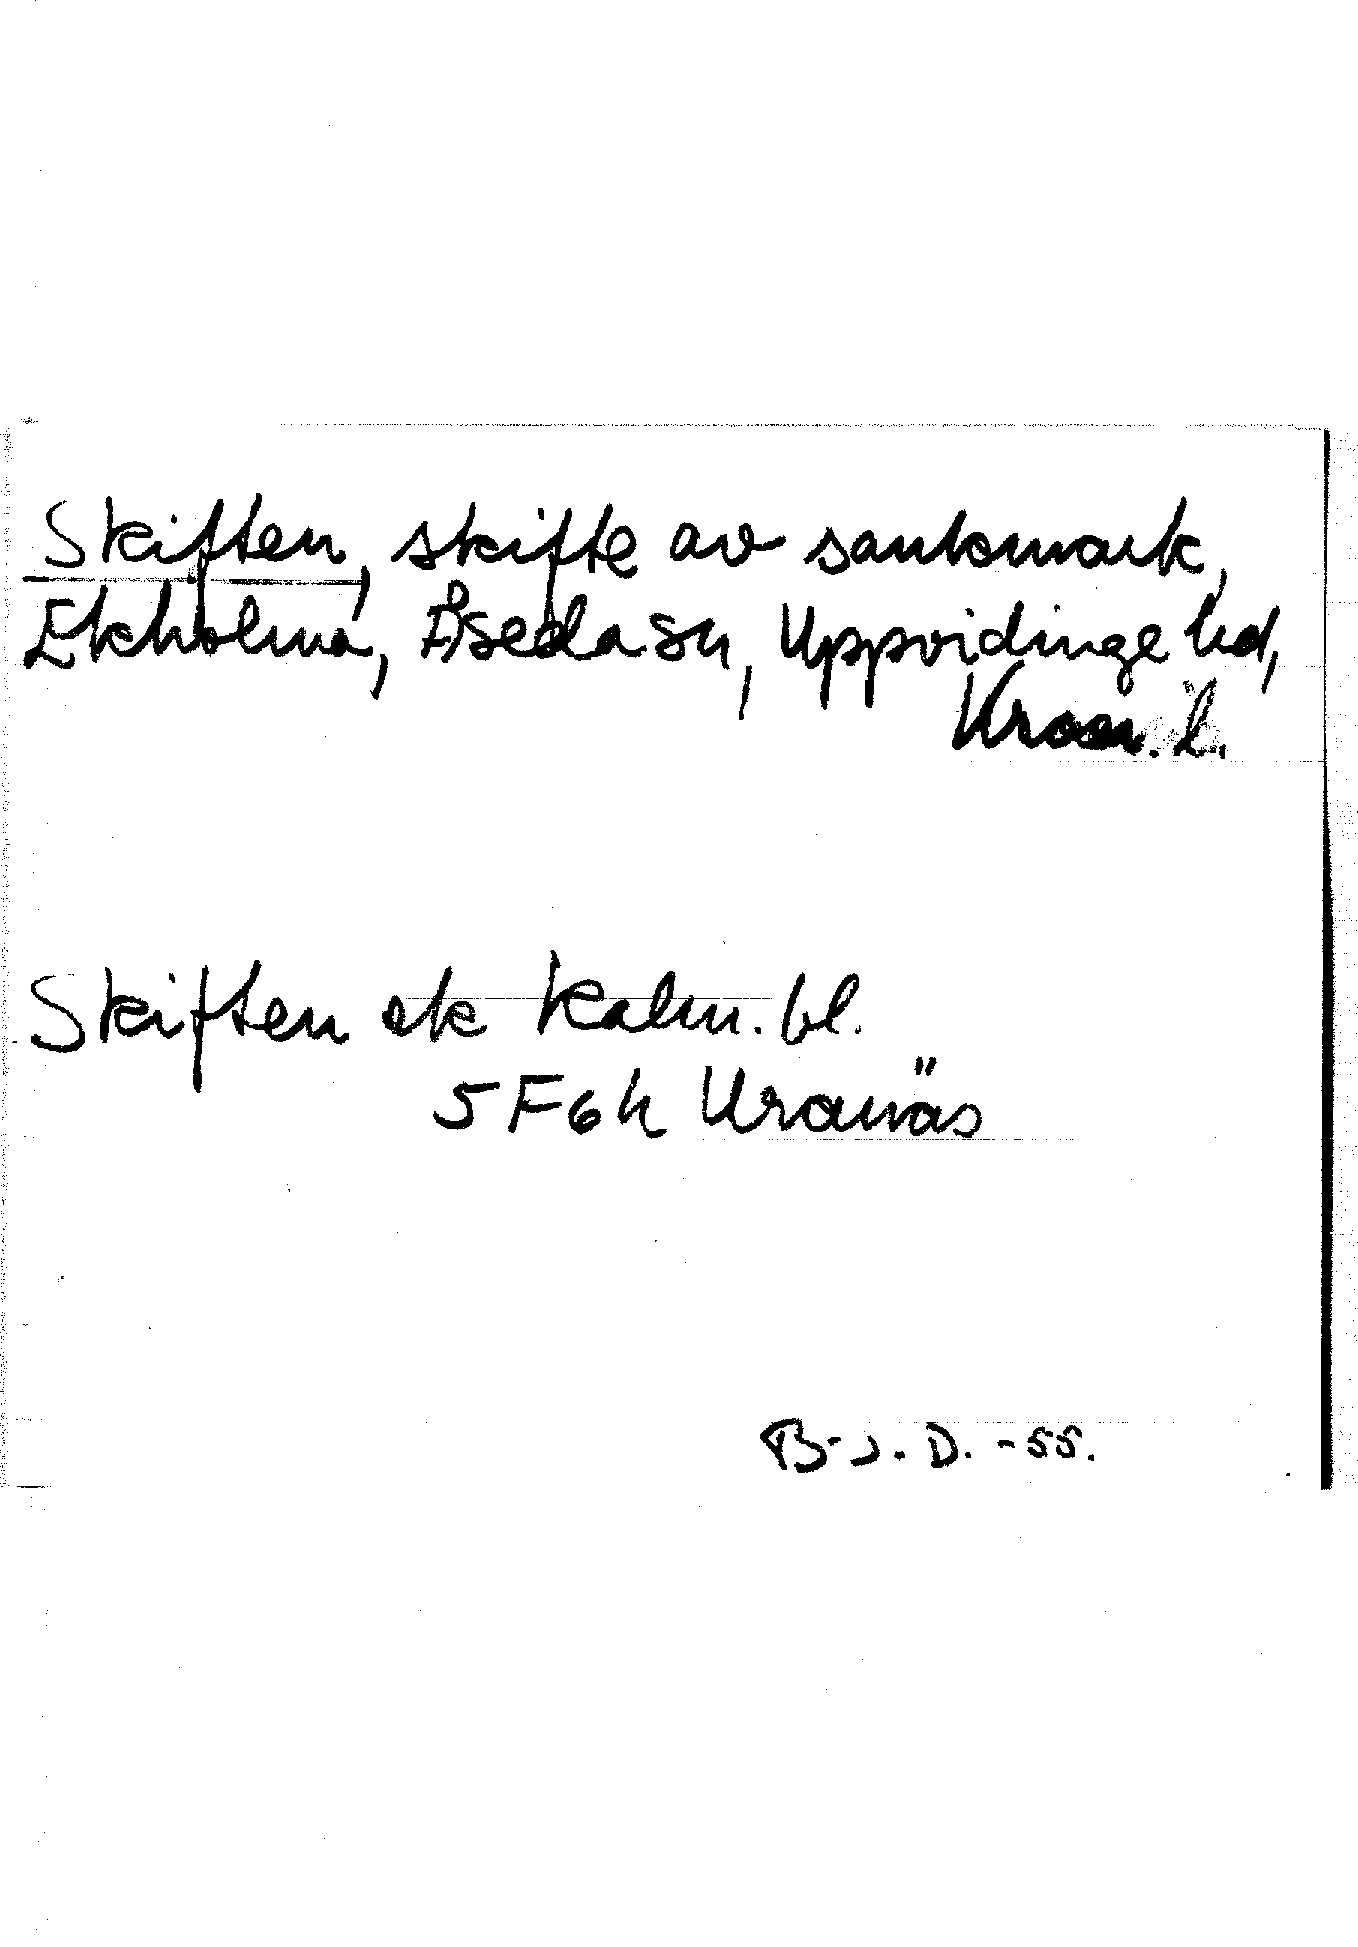 Skiften, skifte av sankmark,
Ekholma, Åseda sn, Uppvidinge hd,
Kron. l.
Skiften ek Kalm. bl.
5 F 6 h Kranäs
B-J. D. -55.